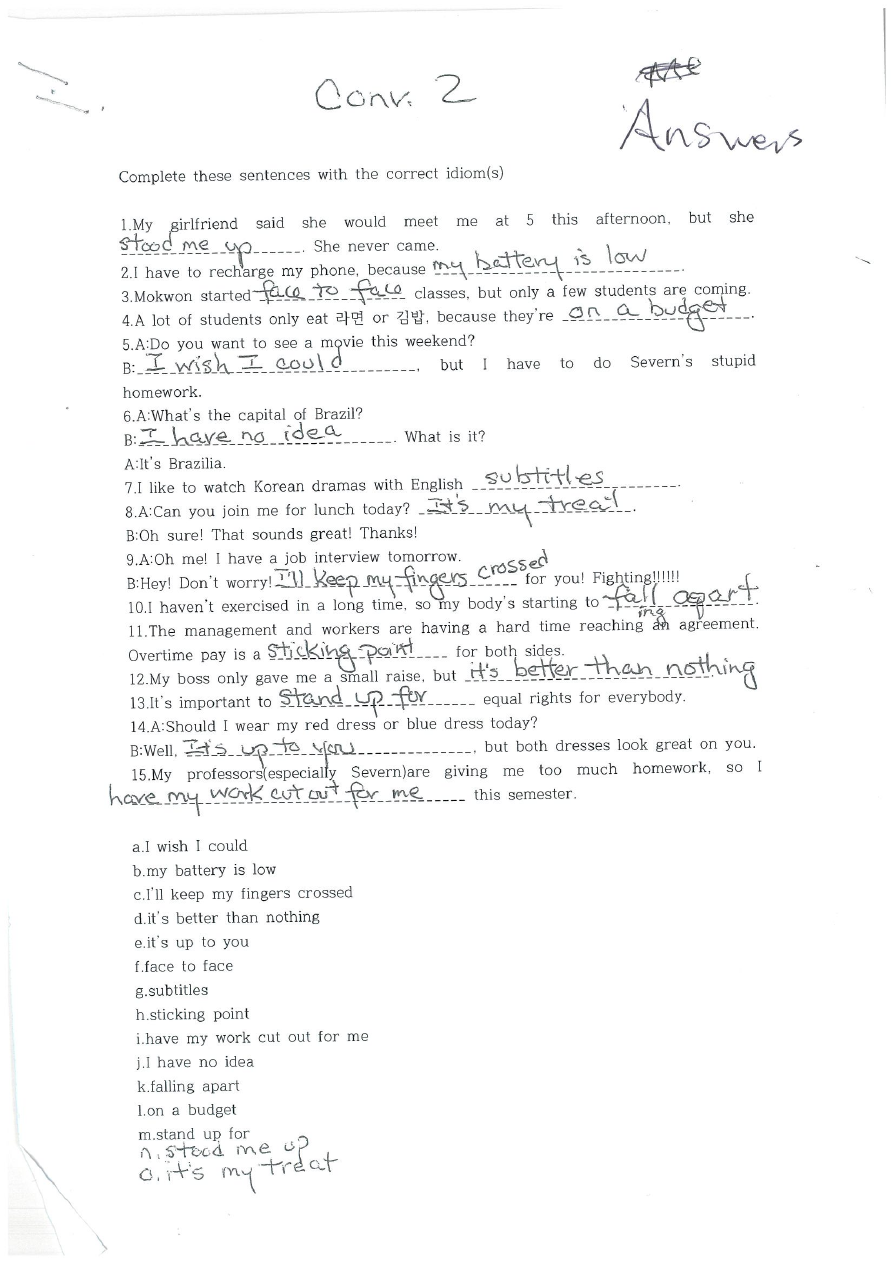 Conv. 2
Answers
Complete these sentences with the correct idiom(s)
1.My girlfriend said she would meet me at 5 this afternoon, but she
stood me up. She never came.
2.I have to recharge my phone, because my battery is low.
3.Mokwon started face to face classes, but only a few students are coming.
4.A lot of students only eat 라면 or 김밥, because they're on a budget.
5.A:Do you want to see a movie this weekend?
B: I wish I could, but I have to do Severn's stupid
homework.
6.A:What's the capital of Brazil?
B: I have no idea. What is it?
A:It's Brazilia.
7.I like to watch Korean dramas with English subtitles.
8.A:Can you join me for lunch today? It's my treat.
B:Oh sure! That sounds great! Thanks!
9.A:Oh me! I have a job interview tomorrow.
B:Hey! Don't worry! I'll keep my fingers crossed for you! Fighting!!!!!!
10.I haven't exercised in a long time, so my body's starting to fall apart.
ing
11.The management and workers are having a hard time reaching an agreement.
Overtime pay is a sticking point for both sides.
12.My boss only gave me a small raise, but it's better than nothing
13.It's important to stand up for equal rights for everybody.
14.A:Should I wear my red dress or blue dress today?
B:Well, It's up to you, but both dresses look great on you.
15.My professors(especially Severn)are giving me too much homework, so I
have my work cut out for me this semester.
a.I wish I could
b.my battery is low
c.I'll keep my fingers crossed
d.it's better than nothing
e.it's up to you
f.face to face
g.subtitles
h.sticking point
i.have my work cut out for me
j.I have no idea
k.falling apart
l.on a budget
m.stand up for
n.stood me up
o.it's my treat